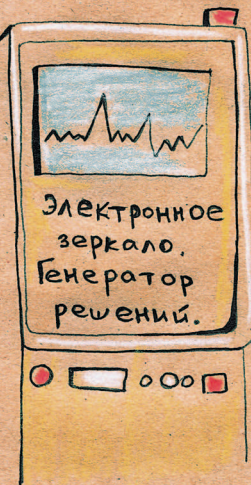 Электронное
зеркало.
Генератор
решений.